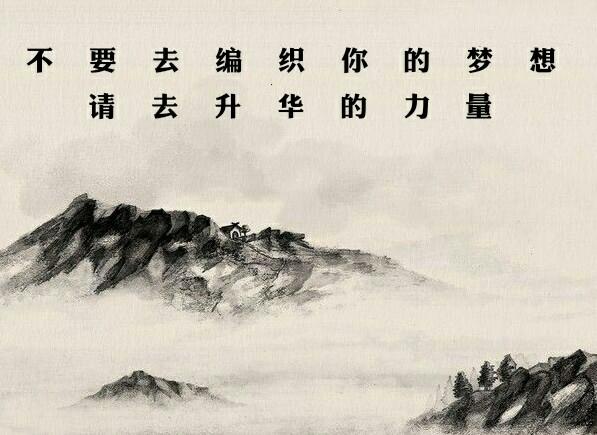 不要去编织你的梦想
请去升华的力量